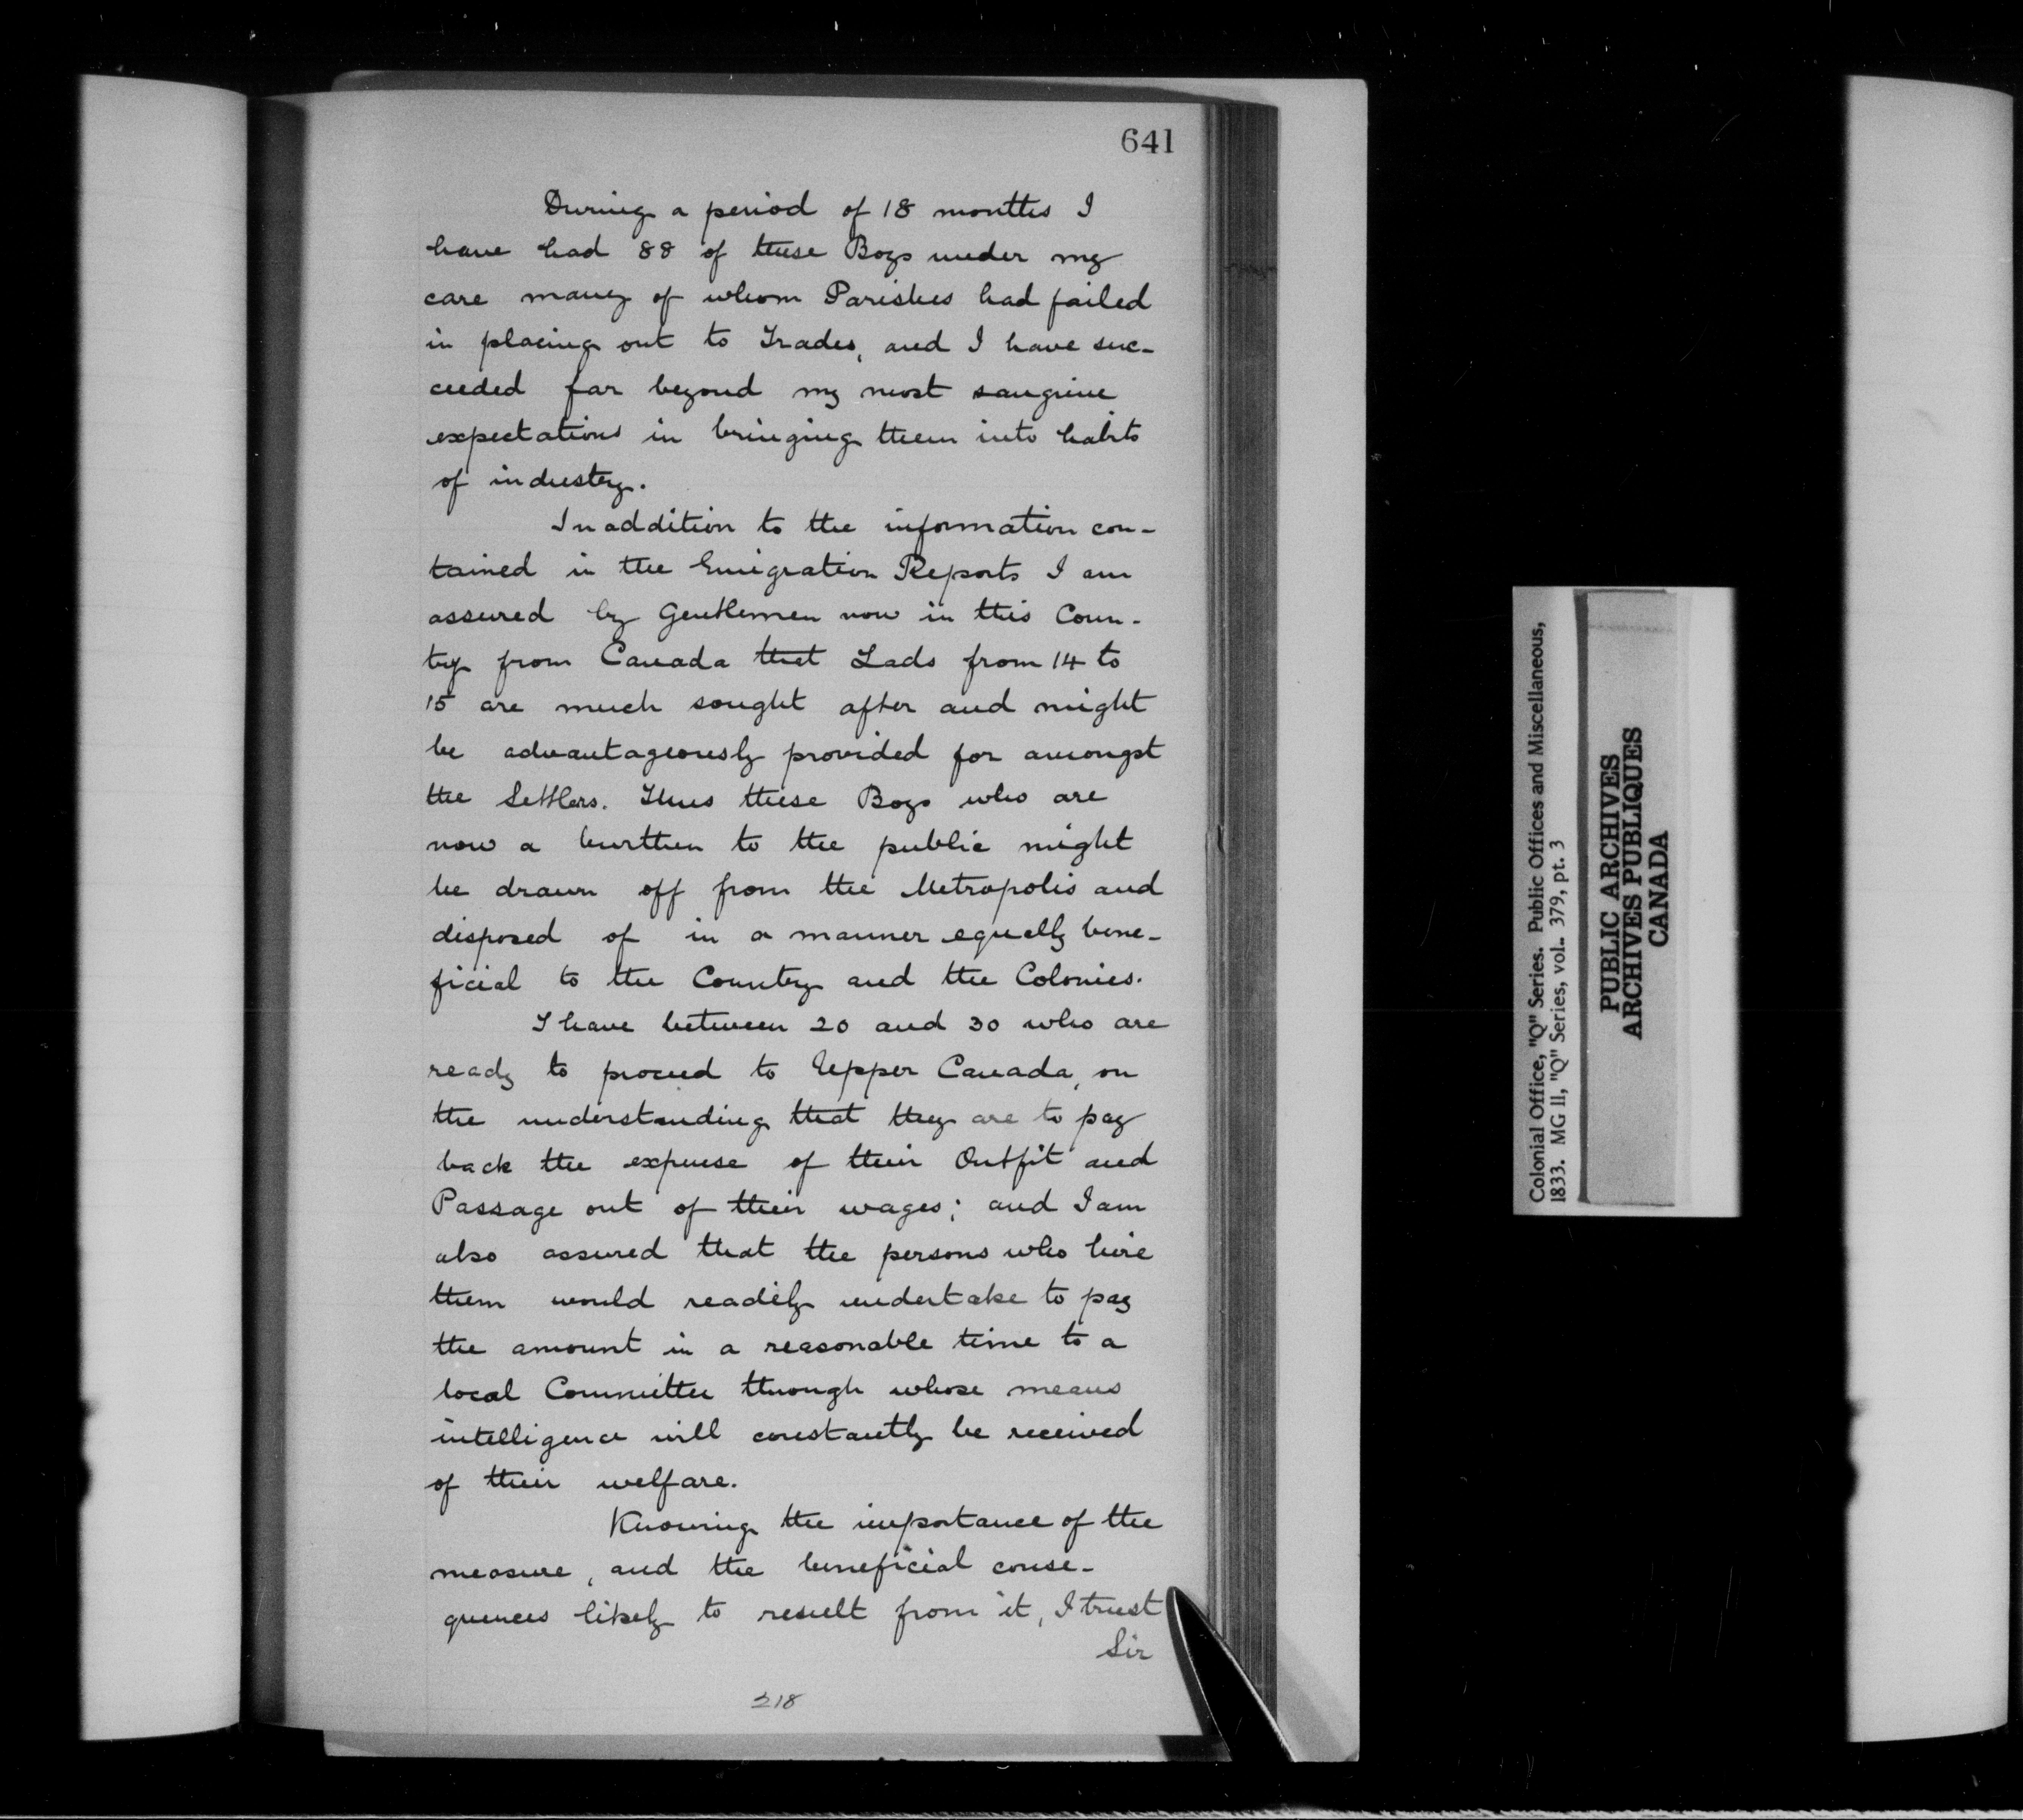 641
During a period of 18 months I
have had 88 of these Boys under my
care many of whom Parishes had failed
in placing out to Trades, and I have suc-
ceeded far beyond my most sanguine
expectations in bringing them into habits
of industry.
In addition to the information con-
tained in the Emigration Reports I am
assured by Gentlemen now in this Coun-
try from Canada that Lads from 14 to
15 are much sought after and might
be advantageously provided for amongst
the Settlers. Thus these Boys who are
now a burthen to the public might
be drawn off from the Metropolis and
disposed of in a manner equally bene-
ficial to the Country and the Colonies.
I have between 20 and 30 who are
ready to proceed to Upper Canada, on
the understanding that they are to pay
back the expense of their Outfit and
Passage out of their wages; and I am
also assured that the persons who hire
them would readily undertake to pay
the amount in a reasonable time to a
local Committee through whose means
intelligence will constantly be received
of their welfare.
Knowing the importance of the
measure, and the beneficial conse-
quences likely to result from it, I trust
Sir
218
Colonial Office, "Q" Series. Public Offices and Miscellaneous,
1833. MG 11, "Q" Series, vol. 379, pt. 3
PUBLIC ARCHIVES
ARCHIVES PUBLIQUES
CANADA